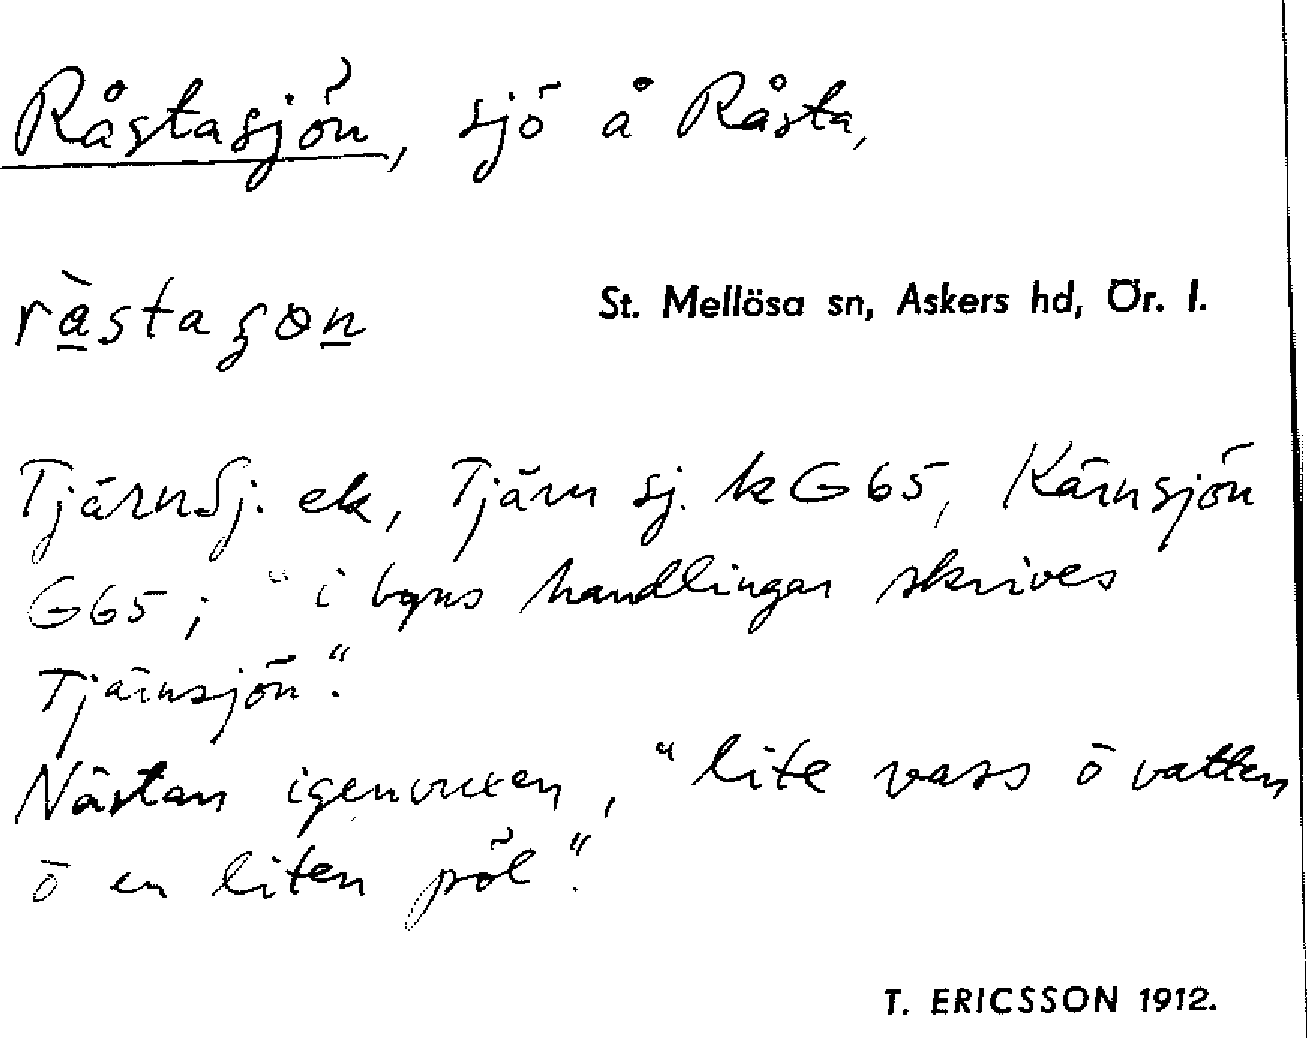 Råstasjön, sjö å Råsta,
St. Mellösa sn, Askers hd, Ör. l.
TjärnSj. ek, Tjärn sj. k G65, Kärnsjön
G65; "i byns handlingar skrives
Tjärnsjön".
Nästan igenvuxen, "lite vass ö vatten
ö en liten pöl".
T. ERICSSON 1912.